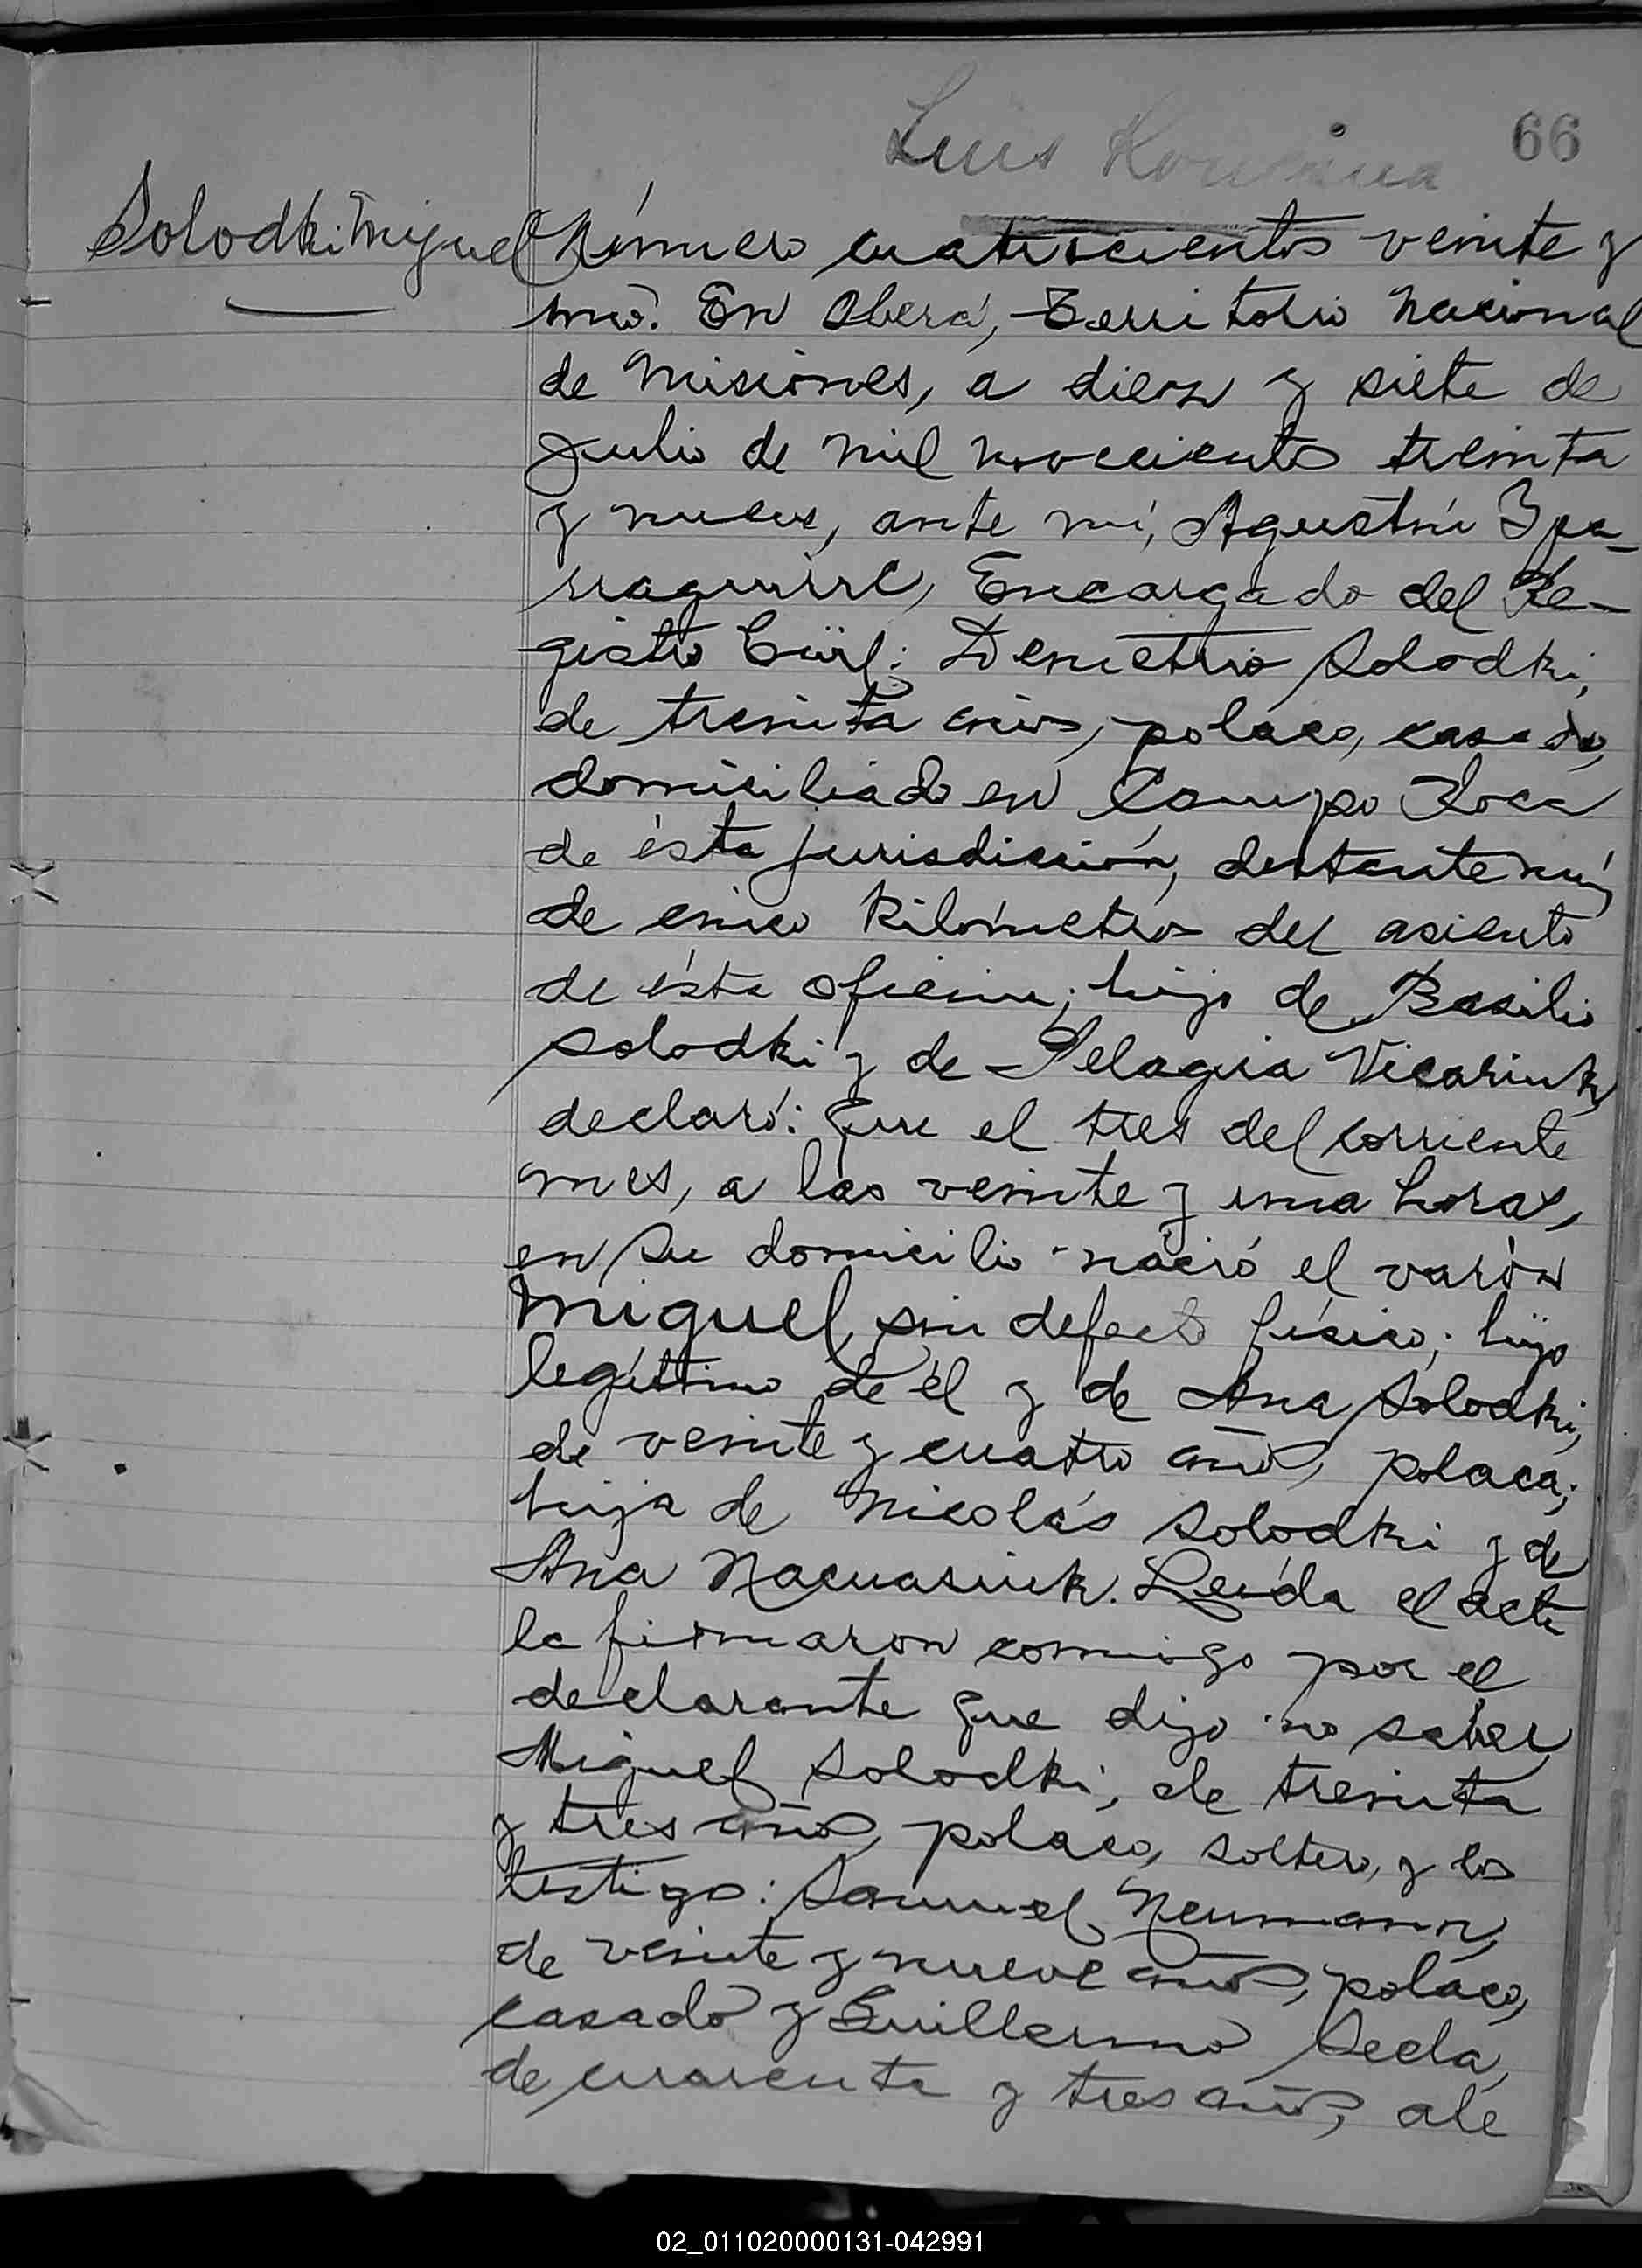 Luis
66
Solodki Miguel
Número cuatrocientos veinte y
uno. En Oberá, Territorio Nacional
de Misiones, a diez y siete de
Julio de mil novecientos treinta
y nueve, ante mí, Agustín Ipa-
rraguirre, Encargado del Re-
gistro Civil: Demetrio Solodki,
de treinta años, polaco, casado,
domiciliado en Campo Roca
de ésta jurisdicción, distante más
de cinco kilómetros del asiento
de ésta oficina; hijo de Basilio
Solodki y de Pelagia Vicariuk,
declaró: Que el tres del corriente
mes, a las veinte y una horas,
en su domicilio nació el varón
Miguel, sin defecto físico; hijo
legítimo de él y de Ana Solodki,
de veinte y cuatro años, polaca;
hija de Nicolás Solodki y de
Ana Nacuasiuk. Leída el acta
la firmaron conmigo por el
declarante que dijo no saber
Miguel Solodki, de treinta
y tres años, polaco, soltero, y los
testigos: Samuel Neumann,
de veinte y nueve años, polaco,
casado y Guillermo Secla,
de cuarenta y tres años, ale
02_011020000131-042991